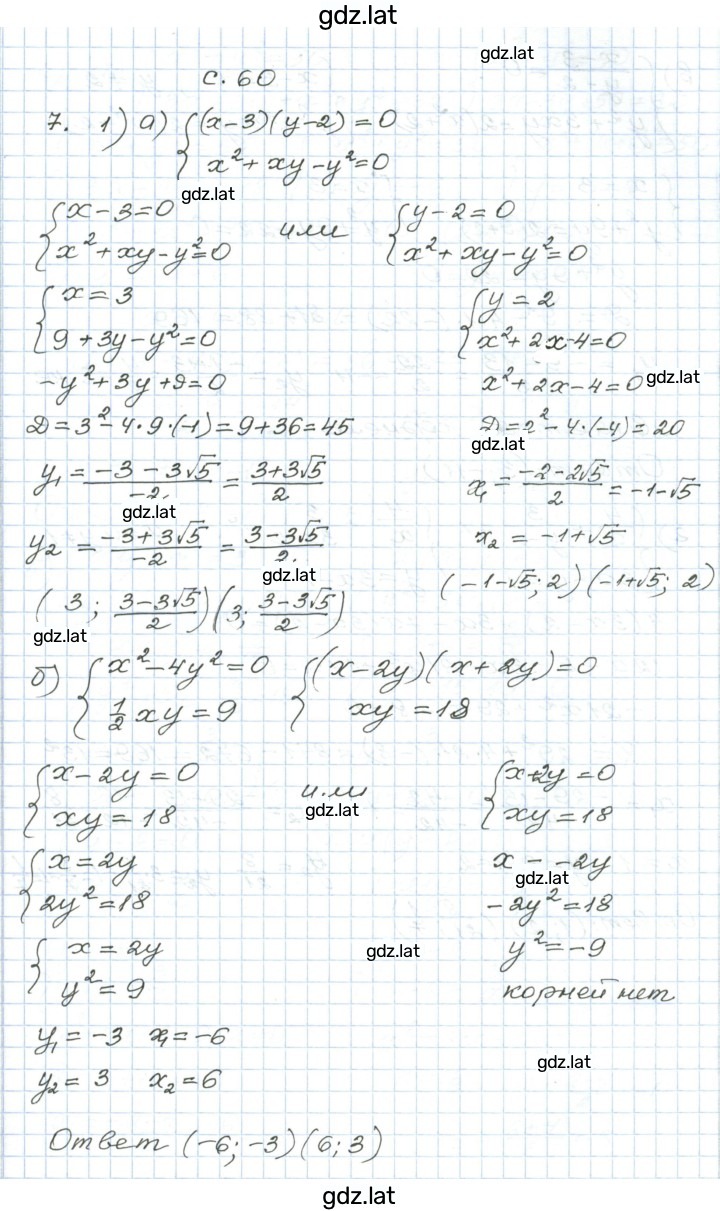 gdz.lat
gdz.lat
с. 60
7. 1) а) { (x-3)(y-2) = 0
x² + xy - y² = 0
gdz.lat
{ x - 3 = 0 или { y - 2 = 0
x² + xy - y² = 0 x² + xy - y² = 0
{ x = 3 { y = 2
9 + 3y - y² = 0 x² + 2x - 4 = 0
-y² + 3y + 9 = 0 x² + 2x - 4 = 0 gdz.lat
D = 3² - 4·9·(-1) = 9 + 36 = 45 D = 2² - 4·(-4) = 20
gdz.lat
y₁ = (-3 - 3√5)/(-2) = (3 + 3√5)/2 x₁ = (-2 - 2√5)/2 = -1 - √5
gdz.lat
y₂ = (-3 + 3√5)/(-2) = (3 - 3√5)/2 x₂ = -1 + √5
gdz.lat
(3; (3 - 3√5)/2) (3; (3 - 3√5)/2) (-1-√5; 2) (-1+√5; 2)
gdz.lat
б) { x² - 4y² = 0 { (x - 2y)(x + 2y) = 0
½ xy = 9 xy = 18
{ x - 2y = 0 или { x + 2y = 0
gdz.lat
xy = 18 xy = 18
{ x = 2y x - -2y
gdz.lat
2y² = 18 -2y² = 18
{ x = 2y gdz.lat y² = -9
y² = 9 корней нет
y₁ = -3 x₁ = -6
gdz.lat
y₂ = 3 x₂ = 6
Ответ (-6; -3) (6; 3)
gdz.lat